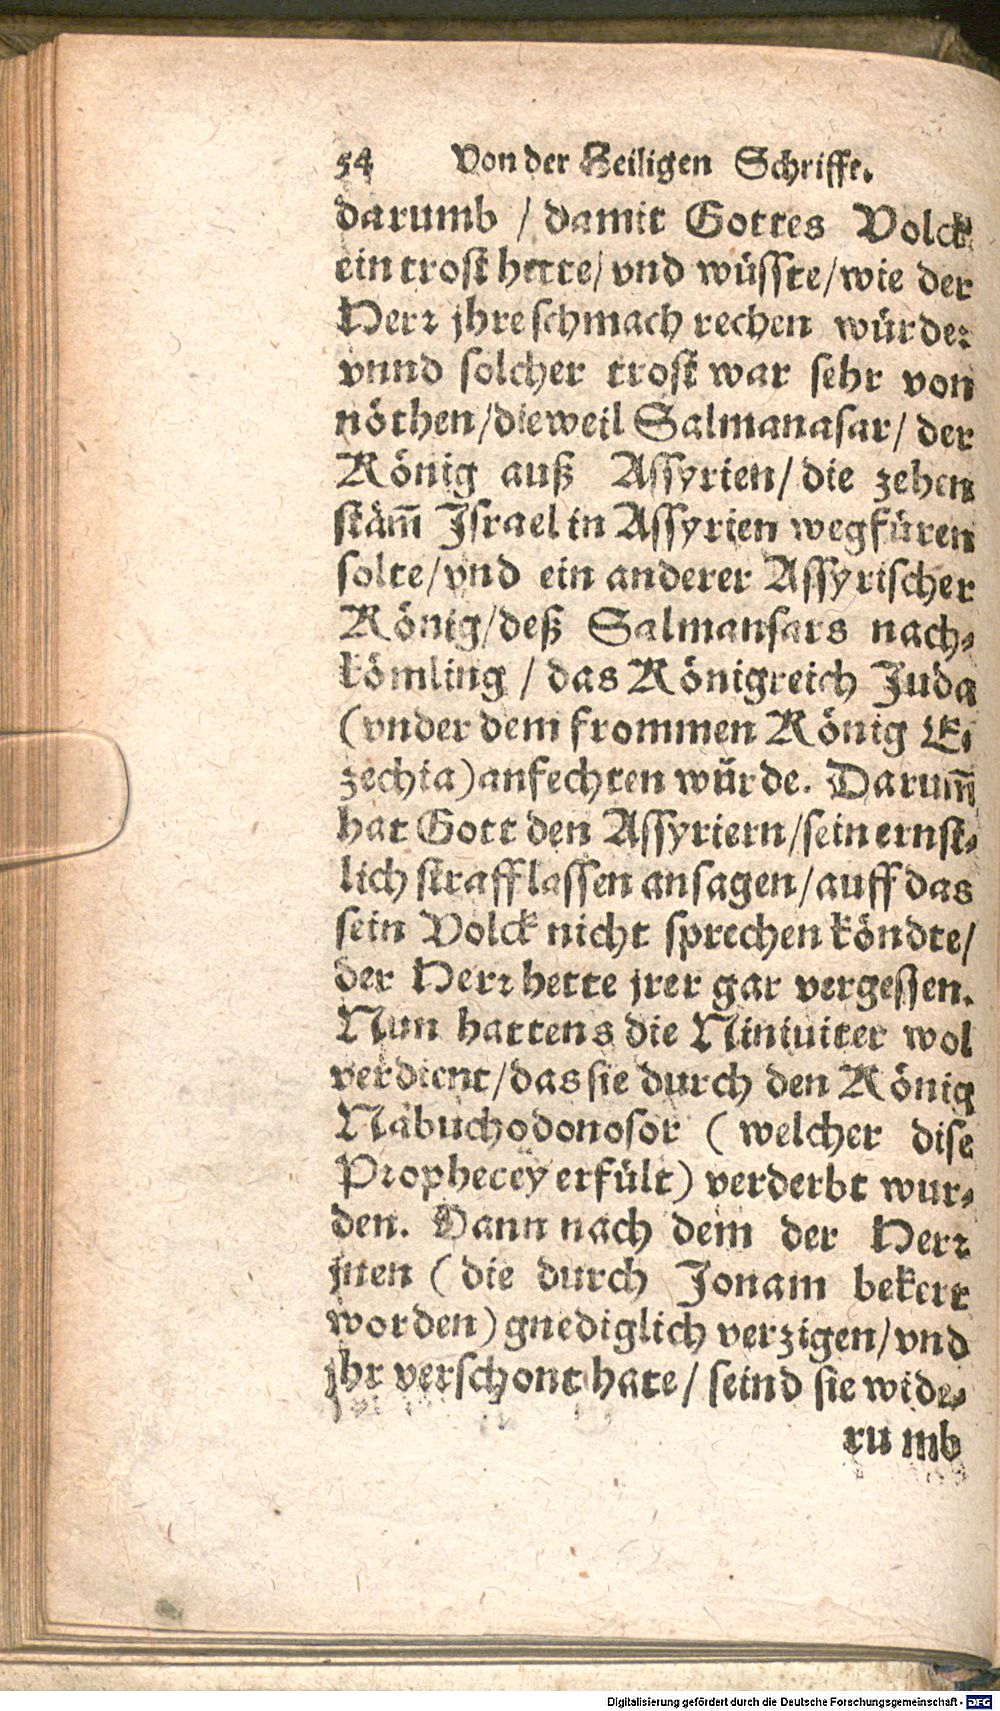 54 Von der Heiligen Schrifft.
darumb / damit Gottes Volck
ein trost hette/ vnd wüsste/ wie der
Herr jhre schmach rechen würde:
vnnd solcher trost war sehr von
nöthen/ dieweil Salmanasar/ der
König auß Assyrien/ die zehen
stäm̃ Israel in Assyrien wegfüren
solte/ vnd ein anderer Assyrischer
König/ deß Salmansars nach-
kömling / das Königreich Juda
(vnder dem frommen König E-
zechia) anfechten würde. Darum̃
hat Gott den Assyriern/ sein ernst-
lich straff lassen ansagen/ auff das
sein Volck nicht sprechen köndte/
der Herr hette jrer gar vergessen.
Nun hattens die Niniuiter wol
verdient/ das sie durch den König
Nabuchodonosor ( welcher dise
Prophecey erfült) verderbt wur-
den. Dann nach dem der Herr
jnen ( die durch Jonam bekert
worden) gnediglich verzigen/ vnd
jhr verschont hate/ seind sie wide-
rumb
Digitalisierung gefördert durch die Deutsche Forschungsgemeinschaft - DFG